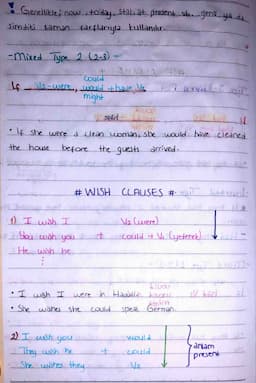 Genellikle; now, today, still, at present vb. geniş ya da
şimdiki zaman zarflarıyla kullanılır.
-Mixed Type 2 (2-3)-
could
If V2-were, would + have V3
might
• If she were a clean woman, she would have cleaned
the house before the guests arrived.
# WISH CLAUSES #
1) I wish I V2 (were)
You wish you + could + V1 (yetenek)
He wish he
• I wish I were in
• She wishes she could speak German.
2) I wish you would
They wish he + could anlam
She wishes they V2 present